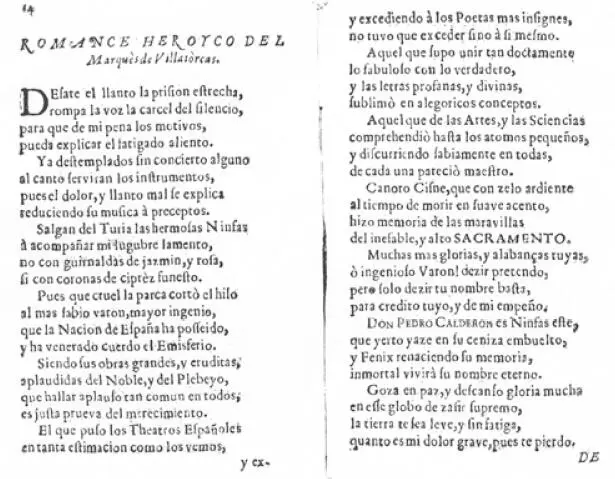 14
ROMANCE HEROYCO DEL
Marquès de Villatòrcas.
DEsate el llanto la prision estrecha,
rompa la voz la carcel del silencio,
para que de mi pena los motivos,
pueda explicar el fatigado aliento.
Ya destemplados sin concierto alguno
al canto serviran los instrumentos,
pues el dolor, y llanto mal se explica
reduciendo su musica à preceptos.
Salgan del Turia las hermosas Ninfas
à acompañar mi lugubre lamento,
no con guirnaldas de jazmin, y rosa,
si con coronas de ciprèz funesto.
Pues que cruel la parca cortò el hilo
al mas sabio varon, mayor ingenio,
que la Nacion de España ha posseido,
y ha venerado cuerdo el Emisferio.
Siendo sus obras grandes, y eruditas,
aplaudidas del Noble, y del Plebeyo,
que hallar aplauso tan comun en todos,
es justa prueva del merecimiento.
El que puso los Theatros Españoles
en tanta estimacion como los vemos,
y ex-
y excediendo à los Poetas mas insignes,
no tuvo que exceder sino à si mesmo.
Aquel que supo unir tan doctamente
lo fabuloso con lo verdadero,
y las letras profanas, y divinas,
sublimò en alegoricos conceptos.
Aquel que de las Artes, y las Sciencias
comprehendiò hasta los atomos pequeños,
y discurriendo sabiamente en todas,
de cada una pareciò maestro.
Canoro Cisne, que con zelo ardiente
al tiempo de morir en suave acento,
hizo memoria de las maravillas
del inefable, y alto SACRAMENTO.
Muchas mas glorias, y alabanças tuyas,
ò ingenioso Varon! dezir pretendo,
pero solo dezir tu nombre basta,
para credito tuyo, y de mi empeño.
DON PEDRO CALDERON es Ninfas este,
que yerto yaze en su ceniza embuelto,
y Fenix renaciendo su memoria,
inmortal vivirà su nombre eterno.
Goza en paz, y descanso gloria mucha
en esse globo de zafir supremo,
la tierra te sea leve, y sin fatiga,
quanto es mi dolor grave, pues te pierdo.
DE